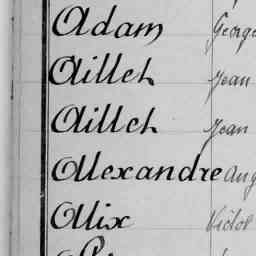 Adam George
Aillet Jean
Aillet Jean
Alexandre Aug
Alix Victor